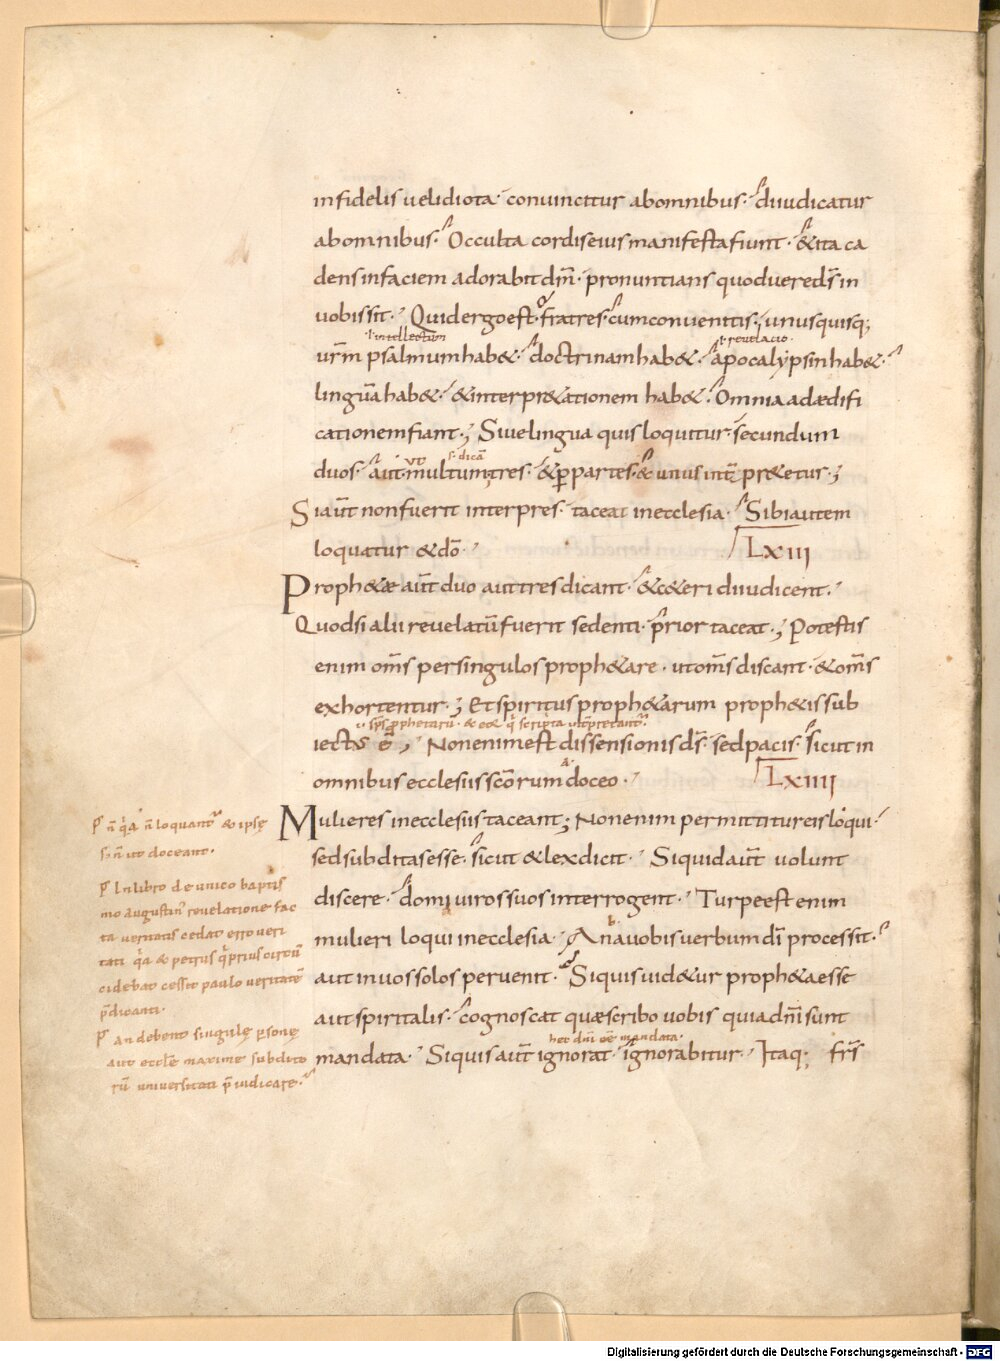 infidelis uel idiota· conuincitur ab omnibus· diiudicatur
ab omnibus· Occulta cordis eius manifesta fiunt· & ita ca
dens in faciem adorabit dm̄· pronuntians quod uere ds̄ in
uobis sit· Quid ergo est· fratres· cum conuenitis· unusquisq;
ł intellectum ł reuelacio·
ur̄m psalmum hab&· doctrinam hab&· apocalypsin hab&·
linguā hab&· & interpr&ationem hab&· Omnia ad ædifi
cationem fiant; Siue lingua quis loquitur· secundum
s· dicā
duos· aut ut multum tres· & ꝑ partes· & unus int̄pr&etur;
Si aut̄ non fuerit interpres· taceat in ecclesia· Sibi autem
loquatur & dō·
LXIII
Proph&æ aut̄ duo aut tres dicant· & c&eri diiudicent·
Quod si alii reuelatū fuerit sedenti· prior taceat; Potestis
enim om̄s per singulos proph&are· ut om̄s discant· & om̄s
exhortentur; Et spiritus proph&arum proph&is sub
iectus ē; Non enim est dissensionis ds̄· sed pacis· sicut in
omnibus ecclesiis sc̄orum doceo·
LXIIII
Mulieres in ecclesiis taceant; Non enim permittitur eis loqui·
sed subditas esse· sicut & lex dicit· Si quid aut̄ uolunt
discere· domi uiros suos interrogent· Turpe est enim
mulieri loqui in ecclesia· An a uobis uerbum dī processit·
aut in uos solos peruenit· Si quis uid&ur proph&a esse
aut spiritalis· cognoscat quæ scribo uobis quia dn̄i sunt
hec dn̄i ēē mandata·
mandata· Si quis aut̄ ignorat· ignorabitur· Itaq; fr̄s
loquant̄ & ipsę
doceant·
In libro de unico baptis
mo augustin' reuelatione fac
ta ueritatis cedat error ueri
tati & petrus
cidebat cesset paulo ueritatē
p̄dicanti·
An debent singulę ꝑsonę
aut eccłe maxime subdito
rū uniuersitati p̄iudicare·